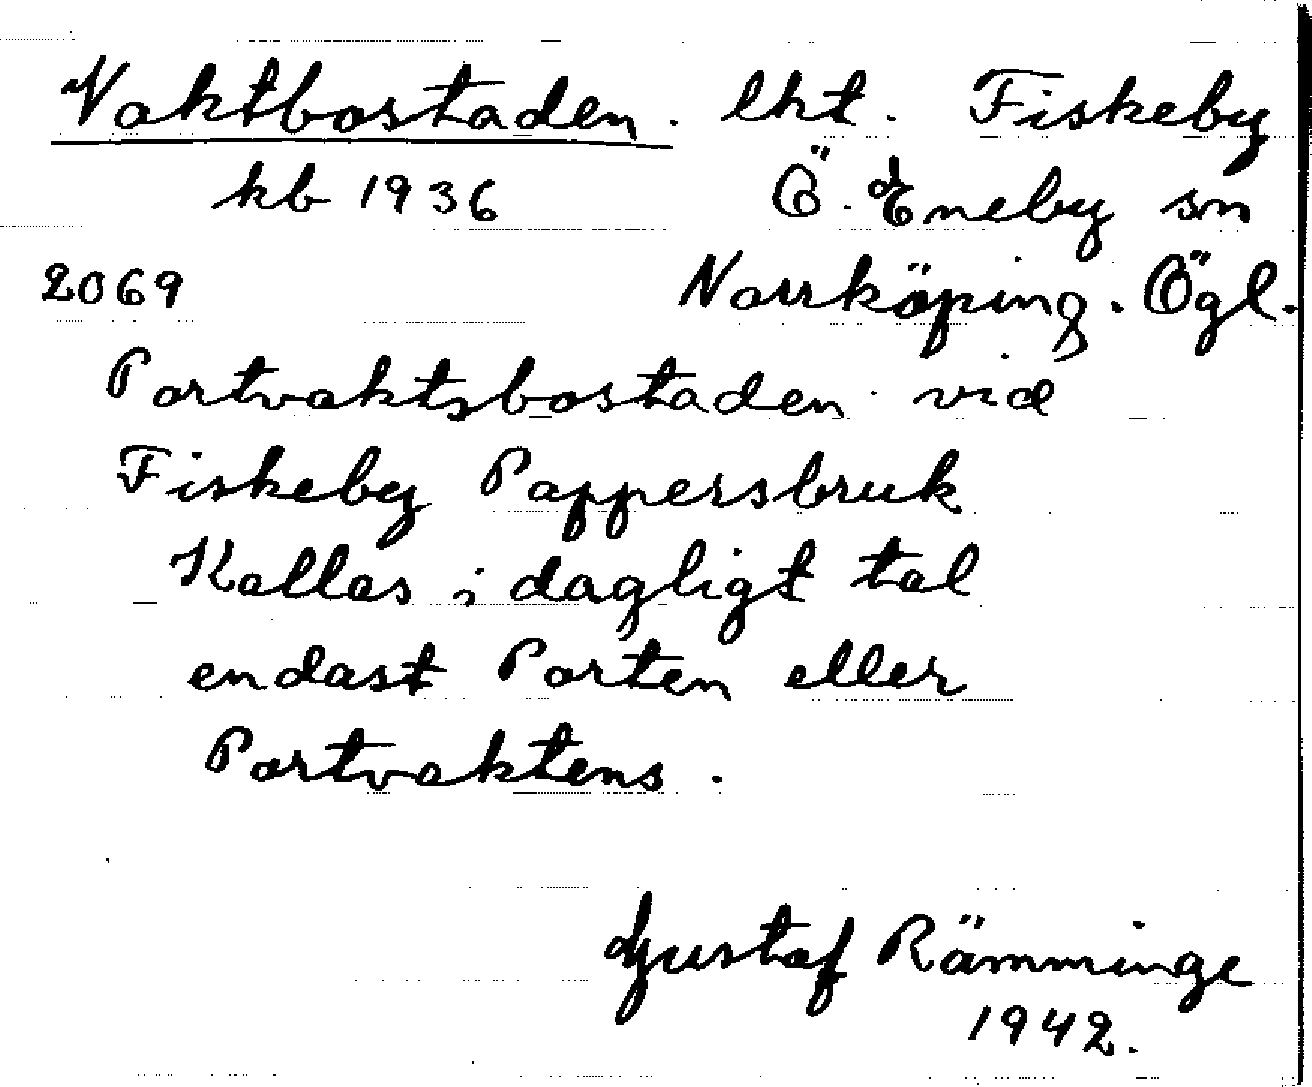 Vaktbostaden. lht. Fiskeby
kb 1936 Ö. Eneby sn
2069 Norrköping. Ögl.
Portvaktsbostaden vid
Fiskeby Pappersbruk
Kallas i dagligt tal
endast Porten eller
Portvaktens.
Gustaf Rämminge
1942.